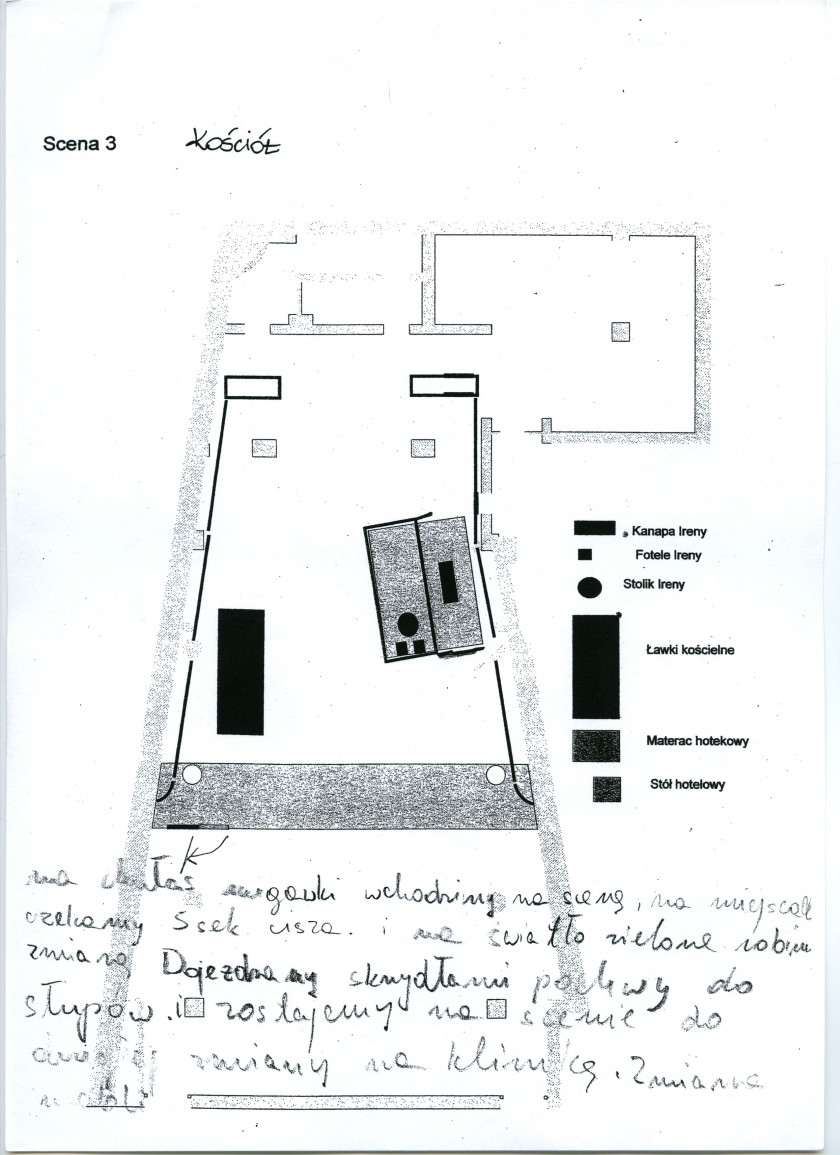 Scena 3 Kościół
Kanapa Ireny
Fotele Ireny
Stolik Ireny
Ławki kościelne
Materac hotekowy
Stół hotelowy
K
na wchodzimy na scenę, na miejscach
czekamy 5 sek cisza. i na światło zielone robimy
zmianę Dojeżdżamy skrzydłami podłogi do
słupów. i zostajemy na scenie do
zmiany na klinikę. Zmiana